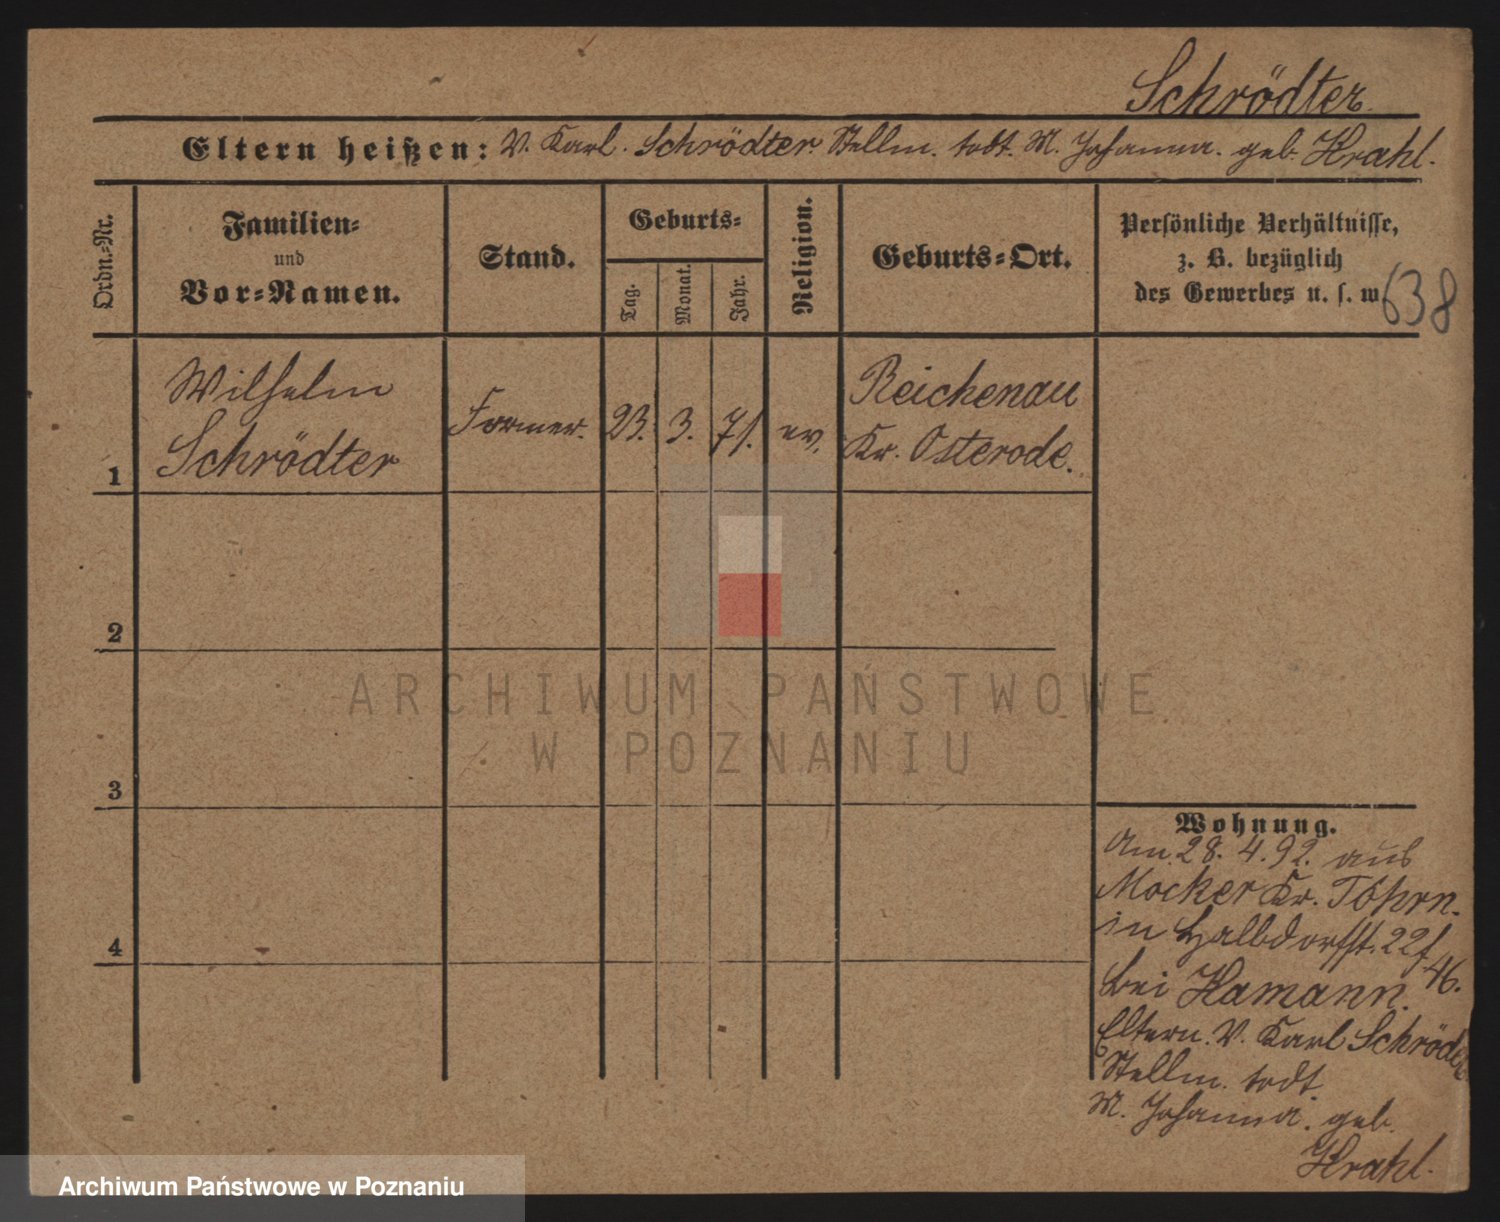 Schrödter
Eltern heißen: V. Karl. Schrödter. Stellm. todt. M. Johanna. geb. Krahl.
Ordn.-Nr.
Familien-
und
Vor-Namen.
Stand.
Geburts-
Tag.
Monat.
Jahr.
Religion.
Geburts-Ort.
Persönliche Verhältnisse,
z. B. bezüglich
des Gewerbes u. s. w.
638
1
Wilhelm
Schrödter
Former.
23.
3.
71.
ev.
Reichenau
Kr. Osterode.
2
3
4
Wohnung.
Am 28. 4. 92. aus
Mocker Kr. Thorn.
in Halbdorfst. 22f
46.
bei Hamann.
Eltern. V. Karl Schrödter
Stellm. todt.
M. Johanna. geb.
Krahl.
ARCHIWUM PAŃSTWOWE
W POZNANIU
Archiwum Państwowe w Poznaniu